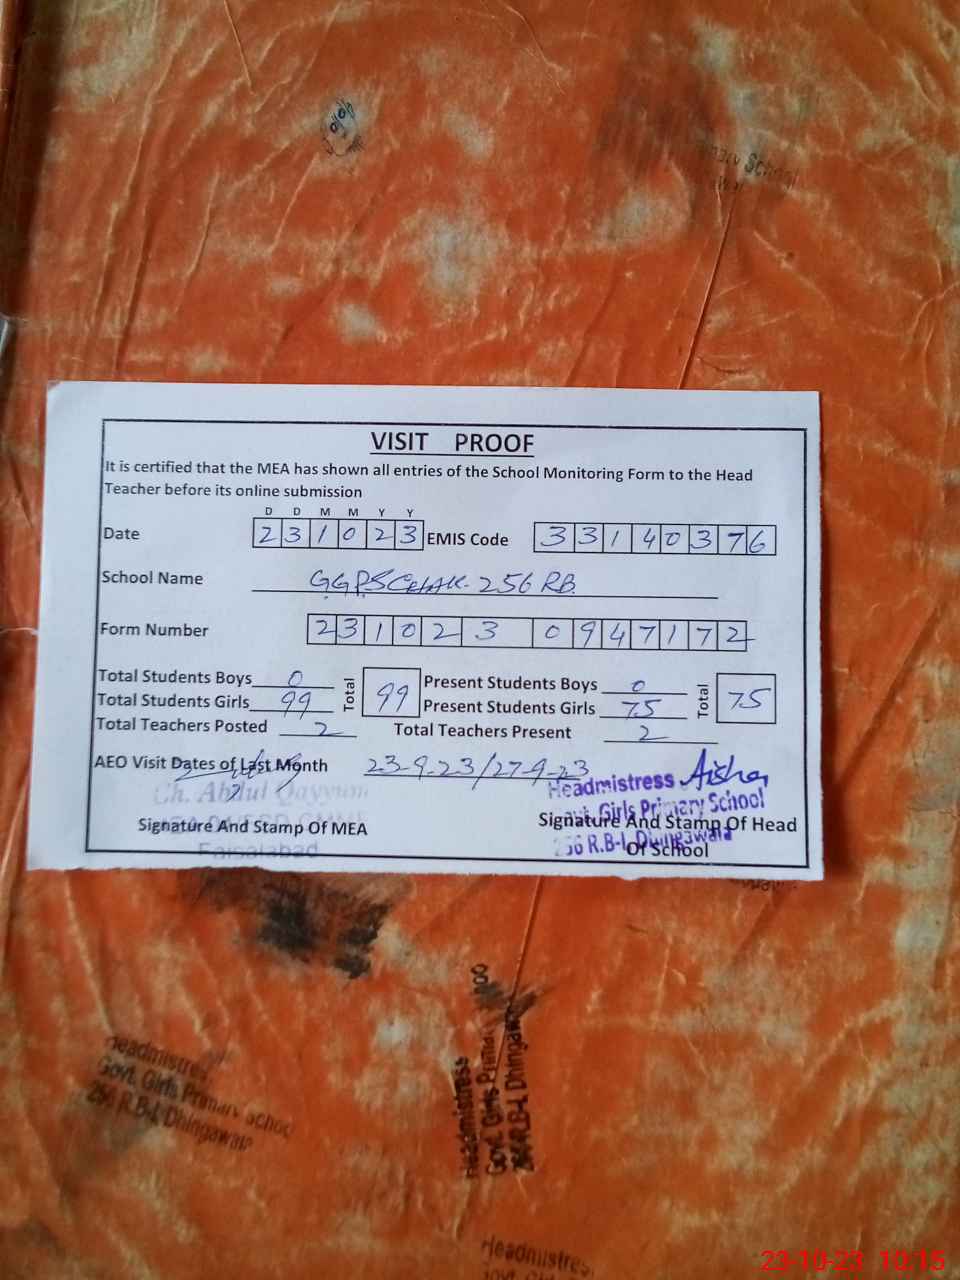 mary School
VISIT PROOF
It is certified that the MEA has shown all entries of the School Monitoring Form to the Head
Teacher before its online submission
D D M M Y Y
Date 2 3 1 0 2 3 EMIS Code 3 3 1 4 0 3 7 6
School Name GGPS Chak 256 RB
Form Number 2 3 1 0 2 3 0 9 4 7 1 7 2
Total Students Boys 0 Total 99 Present Students Boys 0 Total 75
Total Students Girls 99 Present Students Girls 75
Total Teachers Posted 2 Total Teachers Present 2
AEO Visit Dates of Last Month 23-9-23/27-9-23
Headmistress Aisha
Ch. Abdul Qayyum
Govt. Girls Primary School
Signature And Stamp Of MEA Signature And Stamp Of Head
Of School
256 R.B-I, Dhingawala
Faisalabad
Headmistress
Govt. Girls Primary School
256 R.B-I, Dhingawala
Headmistress
Govt. Girls Primary
256 R.B-I, Dhingawala
Headmistress
Govt. Girls
23-10-23 10:15